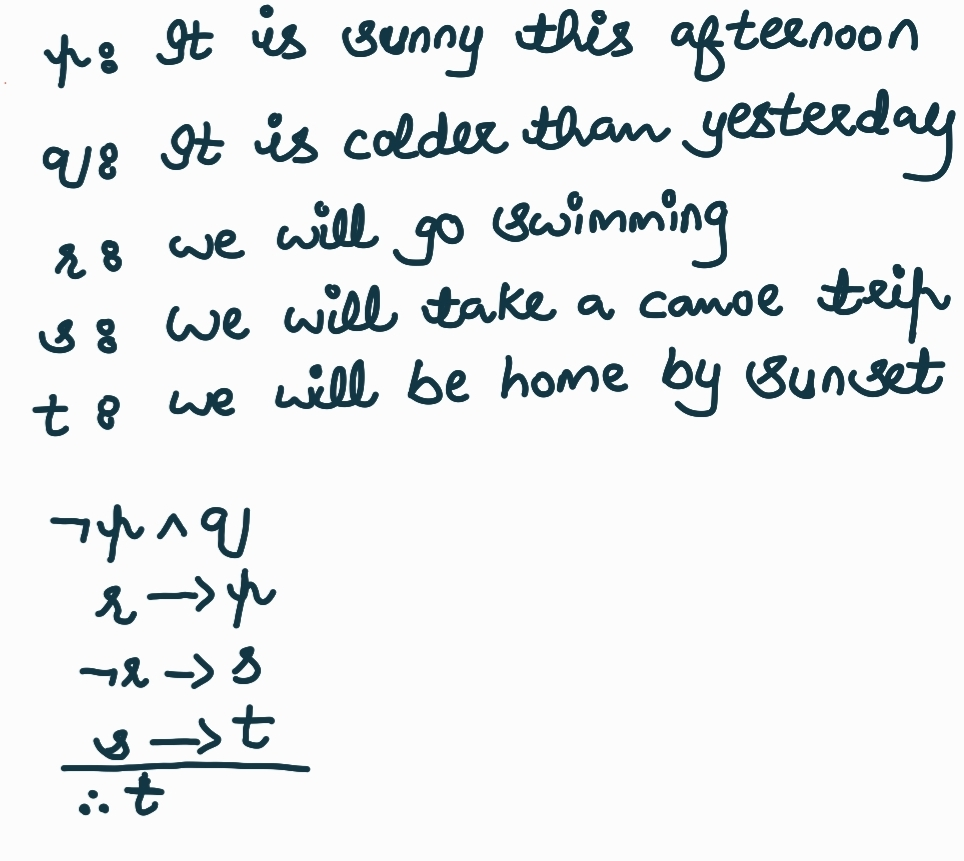 p: It is sunny this afternoon
q: It is colder than yesterday
r: we will go swimming
s: we will take a canoe trip
t: we will be home by sunset
¬p ∧ q
r → p
¬r → s
s → t
∴ t